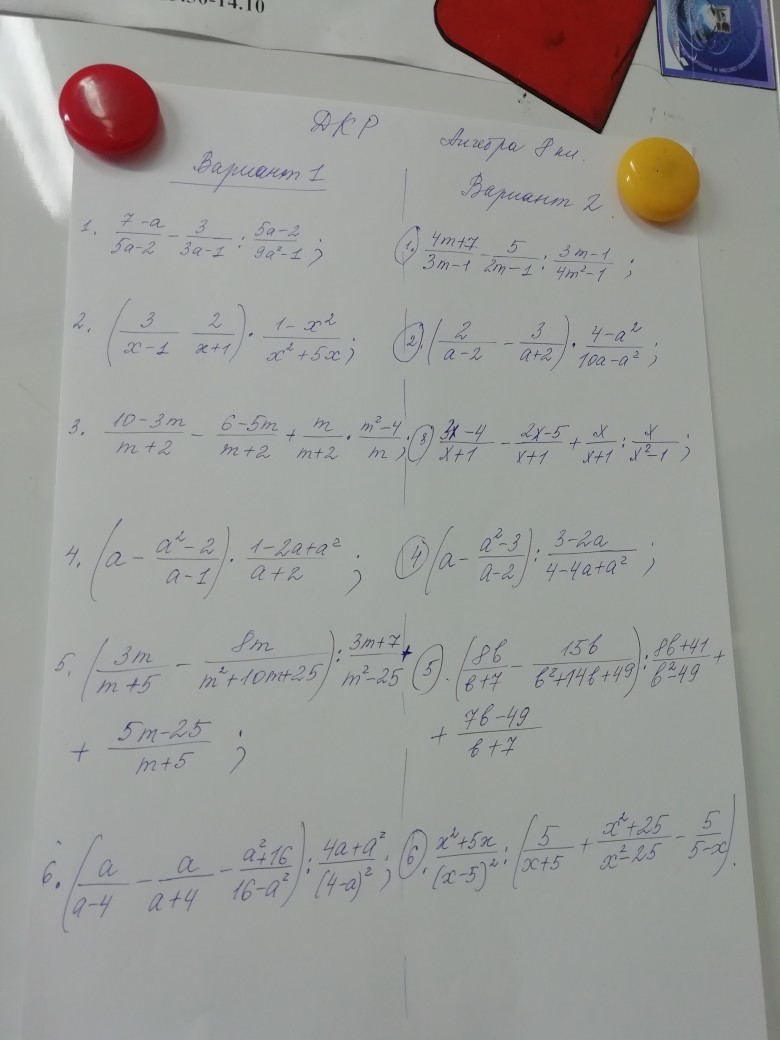 3.30-14.10
ДКР
Алгебра 8 кл.
Вариант 1
Вариант 2.
1. (7-a)/(5a-2) - 3/(3a-1) : (5a-2)/(9a²-1) ;
2. (3/(x-1) 2/(x+1)) · (1-x²)/(x²+5x) ;
3. (10-3m)/(m+2) - (6-5m)/(m+2) + m/(m+2) · (m²-4)/m ;
4. (a - (a²-2)/(a-1)) · (1-2a+a²)/(a+2) ;
5. (3m/(m+5) - 8m/(m²+10m+25)) : (3m+7)/(m²-25) +
+ (5m-25)/(m+5) ;
6. (a/(a-4) - a/(a+4) - (a²+16)/(16-a²)) : (4a+a²)/(4-a)² ;
1. (4m+7)/(3m-1) - 5/(2m-1) : (3m-1)/(4m²-1) ;
2. (2/(a-2) - 3/(a+2)) · (4-a²)/(10a-a²) ;
3 (3x-4)/(x+1) - (2x-5)/(x+1) + x/(x+1) : x/(x²-1) ;
4 (a - (a²-3)/(a-2)) : (3-2a)/(4-4a+a²) ;
5. (8b/(b+7) - 15b/(b²+14b+49)) : (8b+41)/(b²-49) +
+ (7b-49)/(b+7)
6. (x²+5x)/(x-5)² : (5/(x+5) + (x²+25)/(x²-25) - 5/(5-x)).